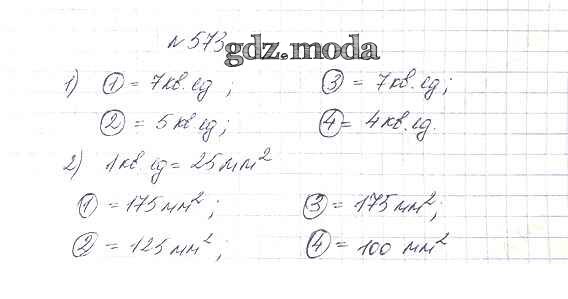 № 573
gdz.moda
1) ① = 7 кв. ед ; ③ = 7 кв. ед ;
② = 5 кв. ед ; ④ = 4 кв. ед.
2) 1 кв. ед = 25 мм²
① = 175 мм² ; ③ = 175 мм² ;
② = 125 мм² ; ④ = 100 мм²